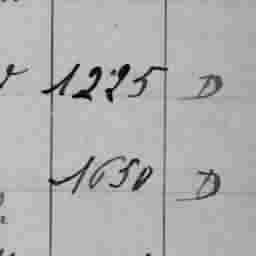 1225 D
1650 D